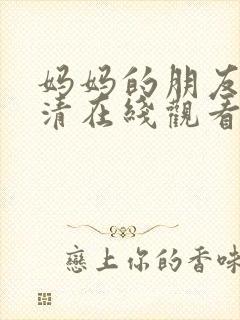 妈妈的朋友
清在线觀看
戀上你的香味